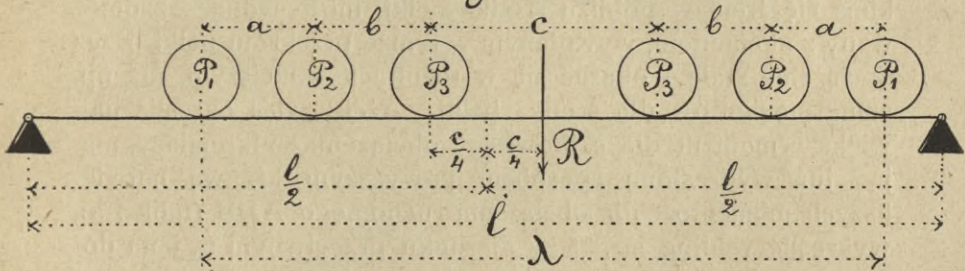 a b c b a
P₁ P₂ P₃ P₃ P₂ P₁
c/4 c/4 R
l/2 l/2
l
λ